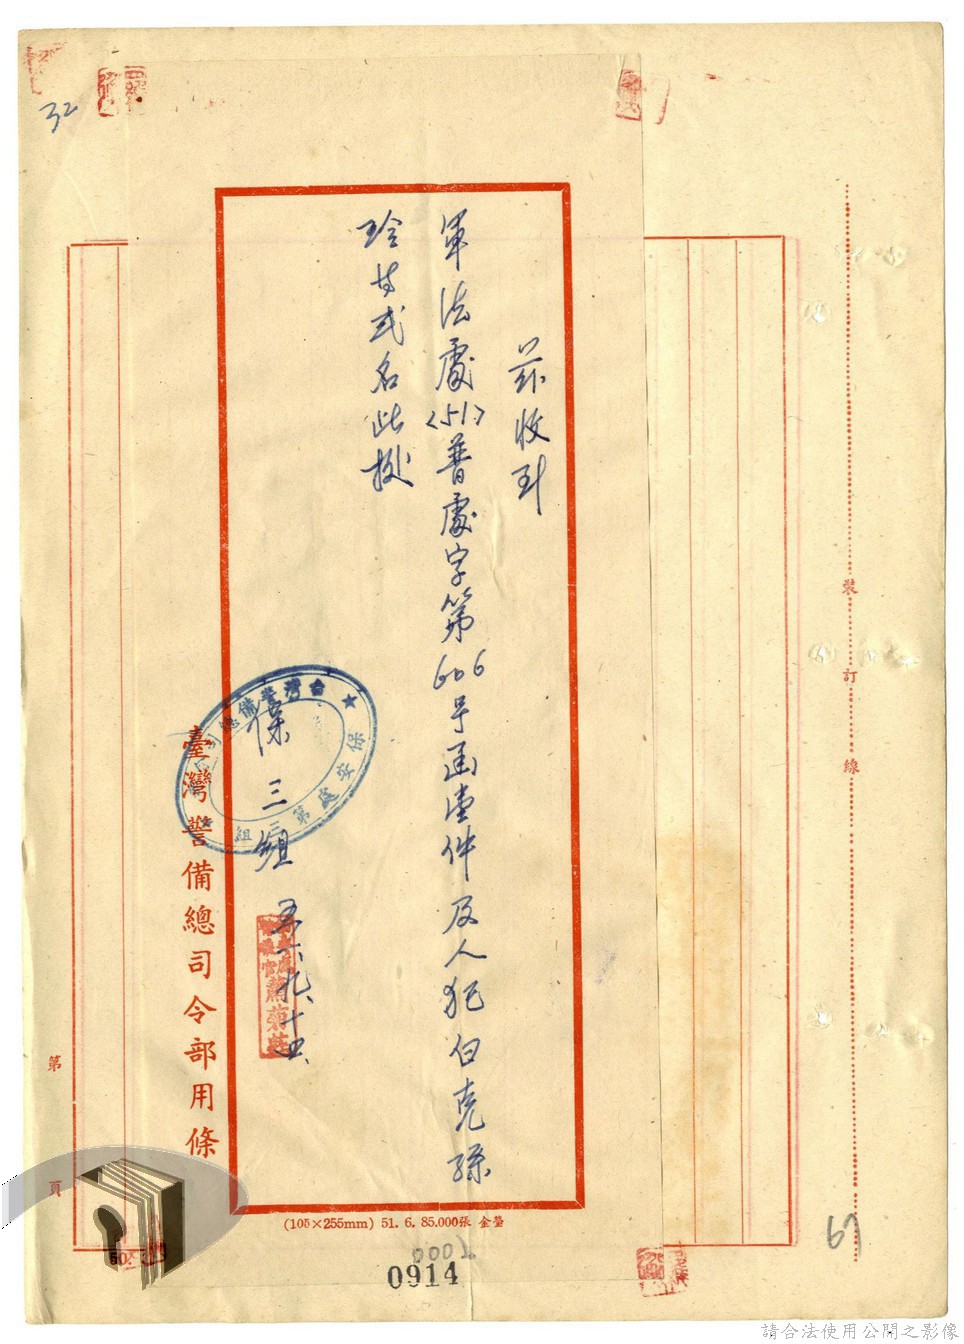 32
茲收到
軍法處〈51〉普處字第606号函壹件及人犯白克孫
玲等弍名此據
保三組 五一、九、十四
台灣警備總司令部
保安處第三組
臺灣警備總司令部用條
(105×255mm) 51. 6. 85.000張 金臺
裝訂線
第 頁
0914
67
請合法使用公開之影像